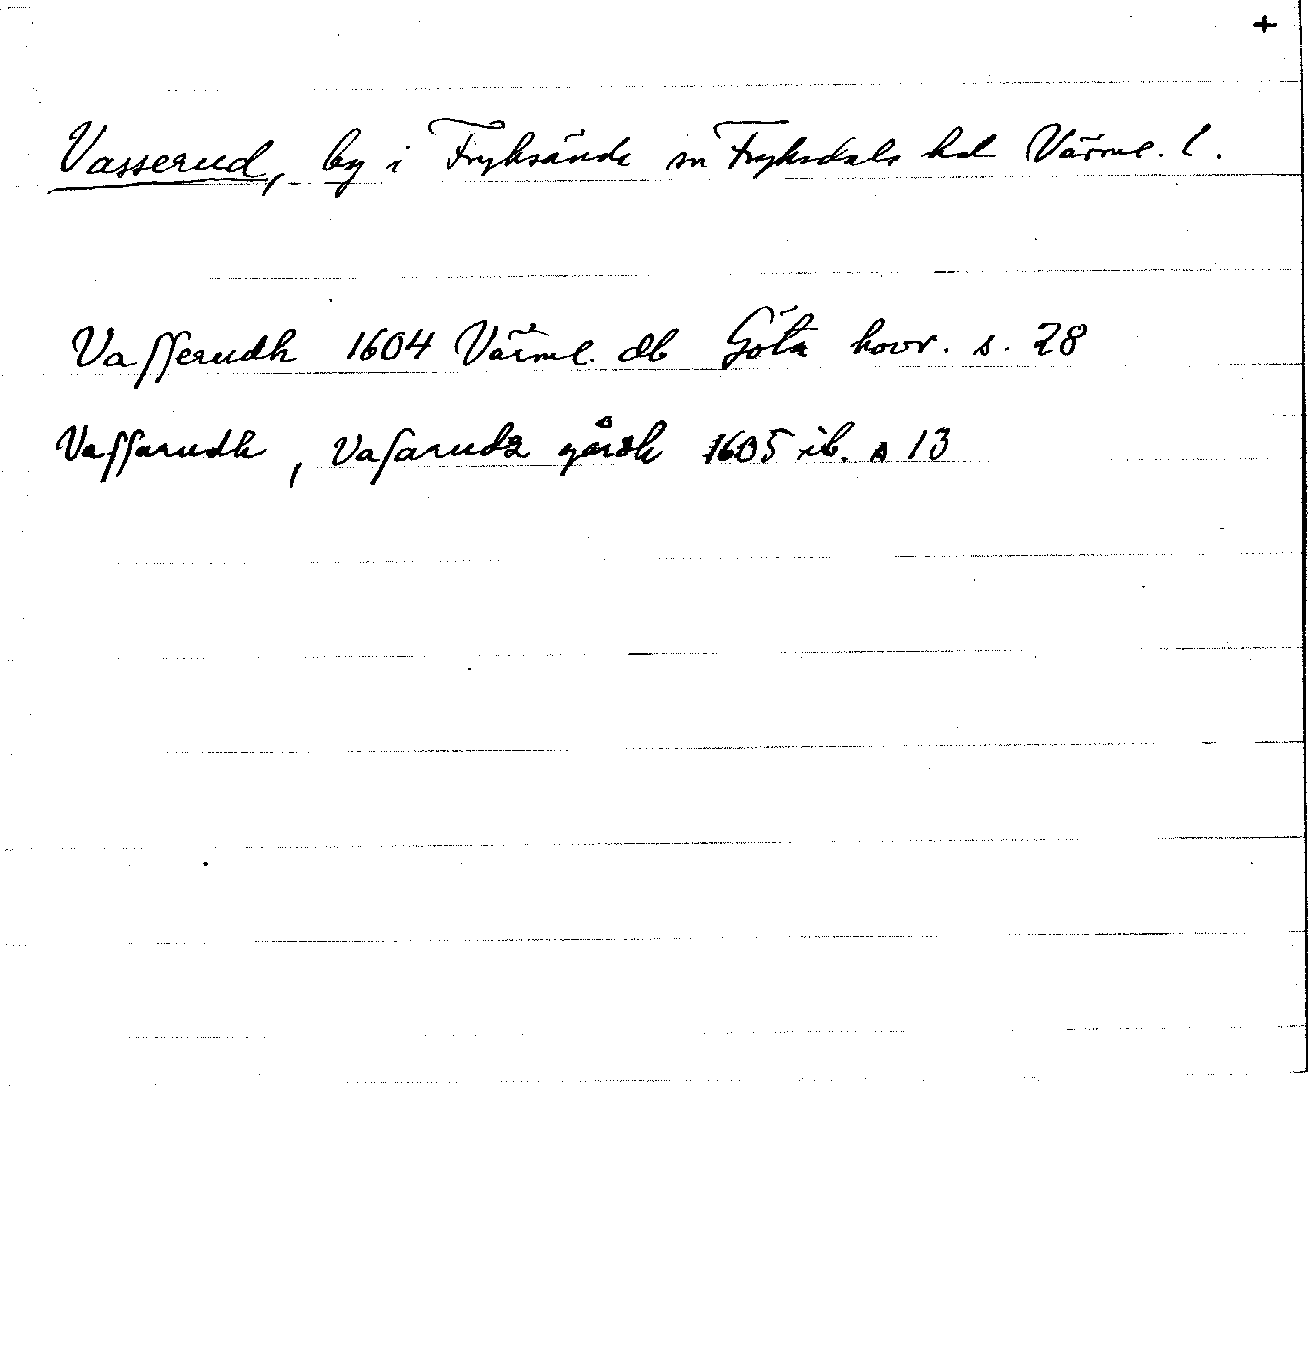 +
Vasserud, by i Fryksände sn Fryksdals hd Värml. l.
Vaſſerudh 1604 Värml. db Göta hovr. s. 28
Vaſſarudh, Vaſarudz gårdh 1605 ib. s 13